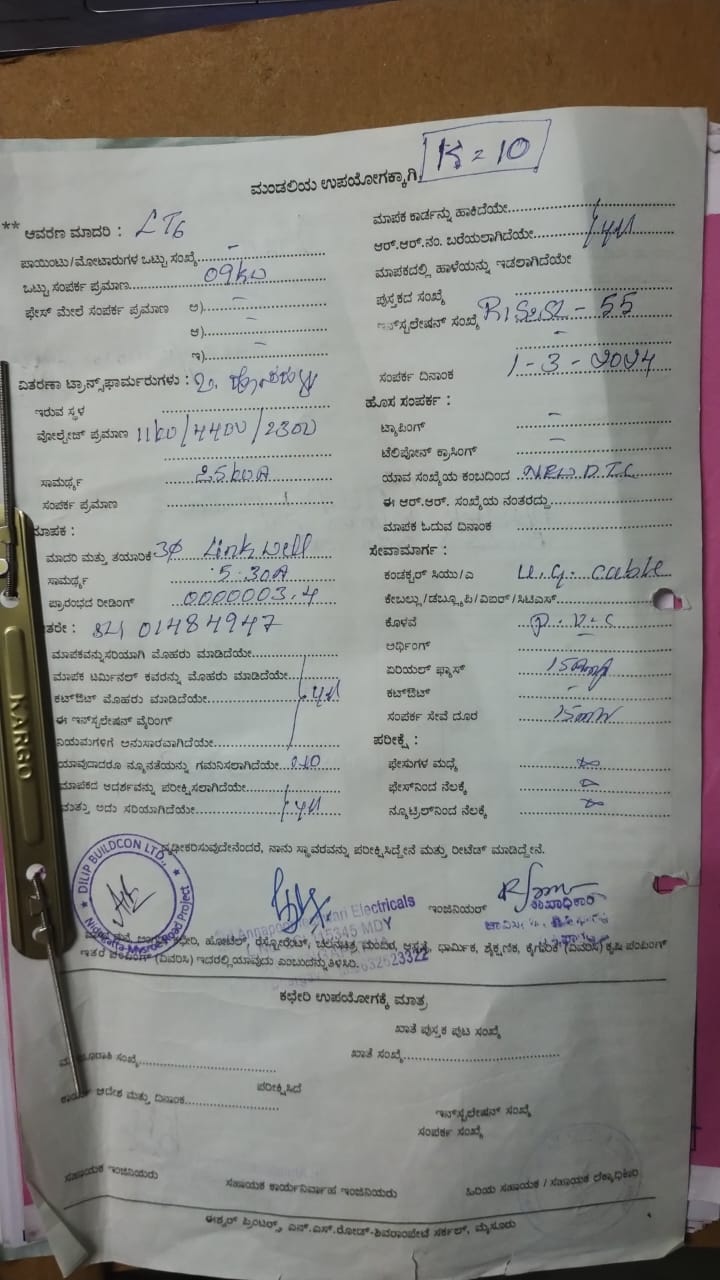 K = 10
ಮಂಡಲಿಯ ಉಪಯೋಗಕ್ಕಾಗಿ
** ಆವರಣ ಮಾದರಿ : LT6
ಪಾಯಿಂಟು/ಮೋಟಾರುಗಳ ಒಟ್ಟು ಸಂಖ್ಯೆ
ಒಟ್ಟು ಸಂಪರ್ಕ ಪ್ರಮಾಣ 09KW
ಫೇಸ್ ಮೇಲೆ ಸಂಪರ್ಕ ಪ್ರಮಾಣ ಅ)
ಆ)
ಇ)
ವಿತರಣಾ ಟ್ರಾನ್ಸ್‌ಫಾರ್ಮರುಗಳು :
ಇರುವ ಸ್ಥಳ
ವೋಲ್ಟೇಜ್ ಪ್ರಮಾಣ 11KV/440V/230V
ಸಾಮರ್ಥ್ಯ 25KVA
ಸಂಪರ್ಕ ಪ್ರಮಾಣ
ಮಾಪಕ :
ಮಾದರಿ ಮತ್ತು ತಯಾರಿಕೆ 3Φ Linkwell
ಸಾಮರ್ಥ್ಯ 5-30A
ಪ್ರಾರಂಭದ ರೀಡಿಂಗ್ 0000003.4
ತರೇ : 01484947
ಮಾಪಕವನ್ನು ಸರಿಯಾಗಿ ಮೊಹರು ಮಾಡಿದೆಯೇ
ಮಾಪಕ ಟರ್ಮಿನಲ್ ಕವರನ್ನು ಮೊಹರು ಮಾಡಿದೆಯೇ
ಕಟ್‌ಔಟ್ ಮೊಹರು ಮಾಡಿದೆಯೇ
ಈ ಇನ್‌ಸ್ಟಲೇಷನ್ ವೈರಿಂಗ್
ನಿಯಮಗಳಿಗೆ ಅನುಸಾರವಾಗಿದೆಯೇ
ಯಾವುದಾದರೂ ನ್ಯೂನತೆಯನ್ನು ಗಮನಿಸಲಾಗಿದೆಯೇ
ಮಾಪಕದ ಆದರ್ಶವನ್ನು ಪರೀಕ್ಷಿಸಲಾಗಿದೆಯೇ
ಮತ್ತು ಅದು ಸರಿಯಾಗಿದೆಯೇ
ಮಾಪಕ ಕಾರ್ಡನ್ನು ಹಾಕಿದೆಯೇ
ಆರ್.ಆರ್.ನಂ. ಬರೆಯಲಾಗಿದೆಯೇ
ಮಾಪಕದಲ್ಲಿ ಹಾಳೆಯನ್ನು ಇಡಲಾಗಿದೆಯೇ
ಪುಸ್ತಕದ ಸಂಖ್ಯೆ
ಇನ್‌ಸ್ಟಲೇಷನ್ ಸಂಖ್ಯೆ - 55
ಸಂಪರ್ಕ ದಿನಾಂಕ 1-3-2024
ಹೊಸ ಸಂಪರ್ಕ :
ಟ್ಯಾಪಿಂಗ್
ಟೆಲಿಪೋನ್ ಕ್ರಾಸಿಂಗ್
ಯಾವ ಸಂಖ್ಯೆಯ ಕಂಬದಿಂದ New D.T.C
ಈ ಆರ್.ಆರ್. ಸಂಖ್ಯೆಯ ನಂತರದ್ದು
ಮಾಪಕ ಓದುವ ದಿನಾಂಕ
ಸೇವಾಮಾರ್ಗ :
ಕಂಡಕ್ಟರ್ ಸಿಯು/ಎ U.G. cable
ಕೇಬಲ್ಲು/ಡಬ್ಲ್ಯೂಪಿ/ವಿಐಆರ್/ಸಿಟಿಎಸ್
ಕೊಳವೆ P.V.C
ಆರ್ಥಿಂಗ್
ಏರಿಯಲ್ ಫ್ಯೂಸ್
ಕಟ್‌ಔಟ್
ಸಂಪರ್ಕ ಸೇವೆ ದೂರ
ಪರೀಕ್ಷೆ :
ಫೇಸುಗಳ ಮಧ್ಯೆ
ಫೇಸ್‌ನಿಂದ ನೆಲಕ್ಕೆ
ನ್ಯೂಟ್ರಲ್‌ನಿಂದ ನೆಲಕ್ಕೆ
ದೃಢೀಕರಿಸುವುದೇನೆಂದರೆ, ನಾನು ಸ್ಥಾವರವನ್ನು ಪರೀಕ್ಷಿಸಿದ್ದೇನೆ ಮತ್ತು ರೀಟೆಡ್ ಮಾಡಿದ್ದೇನೆ.
DILIP BUILDCON LTD.,
Nidagatta-Mysore Road Project
Electricals
15345 MDY
ಇಂಜಿನಿಯರ್
ಶಾಖಾಧಿಕಾರಿ
ಹೋಟೆಲ್, ರೆಸ್ಟೋರೆಂಟ್, ಚಲನಚಿತ್ರ ಮಂದಿರ, ಆಸ್ಪತ್ರೆ, ಧಾರ್ಮಿಕ, ಶೈಕ್ಷಣಿಕ, ಕೈಗಾರಿಕೆ (ವಿವರಿಸಿ) ಕೃಷಿ ಪಂಪಿಂಗ್
ಇತರೆ ಪಂಪಿಂಗ್ (ವಿವರಿಸಿ) ಇದರಲ್ಲಿ ಯಾವುದು ಎಂಬುದನ್ನು ತಿಳಿಸಿರಿ.
ಕಛೇರಿ ಉಪಯೋಗಕ್ಕೆ ಮಾತ್ರ
ಖಾತೆ ಪುಸ್ತಕ ಪುಟ ಸಂಖ್ಯೆ
ಖಾತೆ ಸಂಖ್ಯೆ
ಪರೀಕ್ಷಿಸಿದೆ
ಆದೇಶ ಮತ್ತು ದಿನಾಂಕ
ಇನ್‌ಸ್ಟಲೇಷನ್ ಸಂಖ್ಯೆ
ಸಂಪರ್ಕ ಸಂಖ್ಯೆ
ಸಹಾಯಕ ಇಂಜಿನಿಯರು
ಸಹಾಯಕ ಕಾರ್ಯನಿರ್ವಾಹಕ ಇಂಜಿನಿಯರು
ಹಿರಿಯ ಸಹಾಯಕ / ಸಹಾಯಕ ಲೆಕ್ಕಾಧಿಕಾರಿ
ಈಶ್ವರ್ ಪ್ರಿಂಟರ್ಸ್, ಎನ್.ಎಸ್.ರೋಡ್-ಶಿವರಾಂಪೇಟೆ ಸರ್ಕಲ್, ಮೈಸೂರು
KARGO